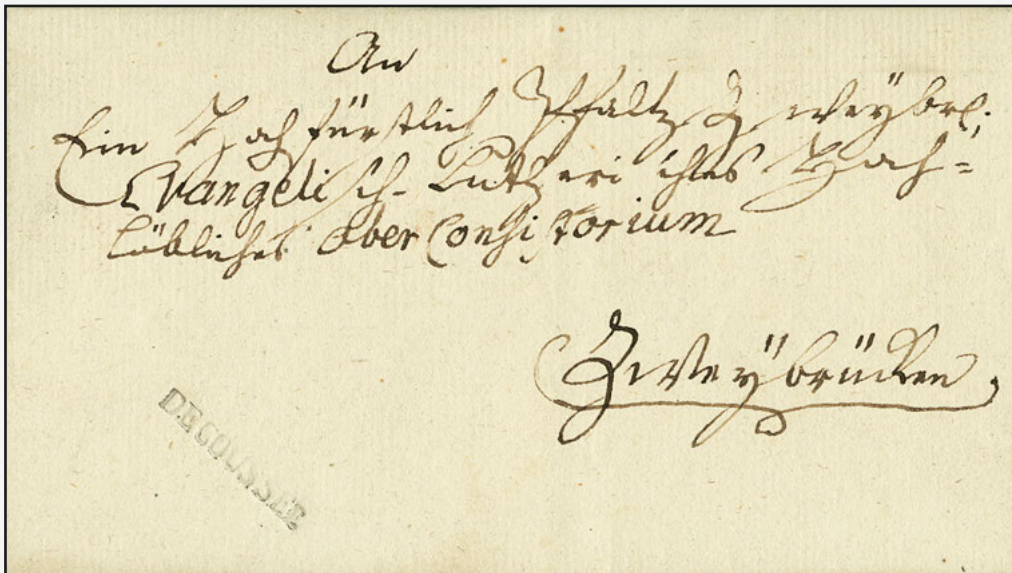 An
Ein Hochfürstlich Pfaltz Zweybrl.
Evangelisch-Lutherisches Hoch=
löbliches Ober Consistorium
Zweybrücken.
DECOUSSEE